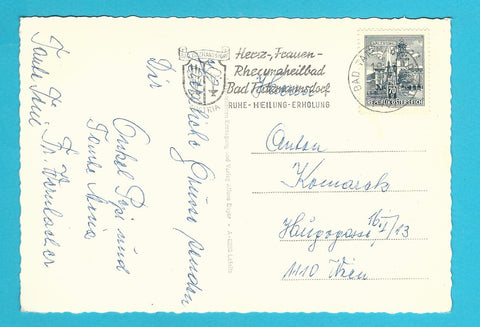 Herz-, Frauen-
Rheumaheilbad
Bad Tatzmannsdorf
RUHE - HEILUNG - ERHOLUNG
BAD TATZ
REPUBLIK ÖSTERREICH
Dir
herzliche Grüsse senden
Onkel Pepi und
Tante Mina
Tante Fini Fr. Wernbacher
Herrn
Anton
Komarek
Hugogasse 16/I/13
1110 Wien